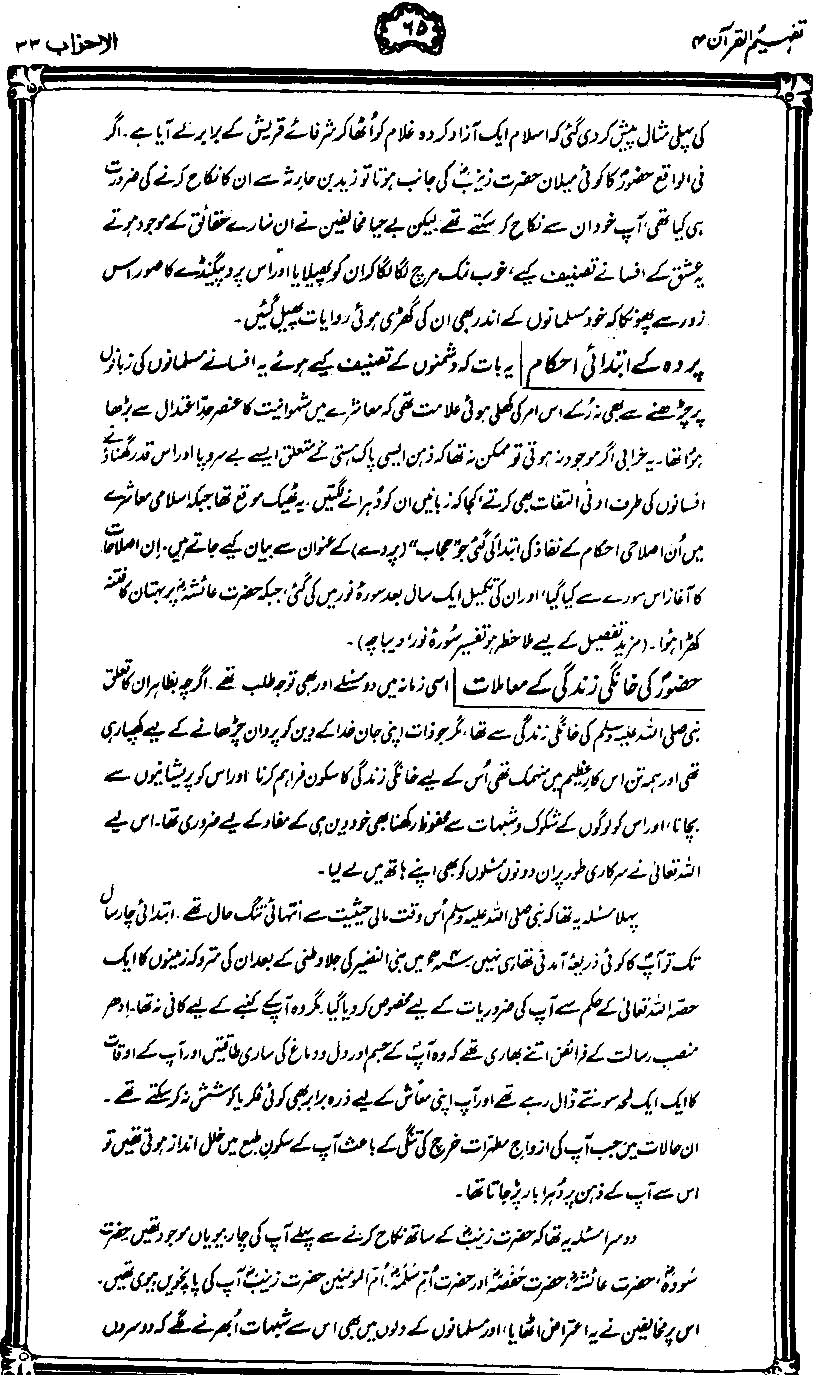 تفہیم القرآن ۴
۶۵
الاحزاب ۳۳
کی پہلی مثال پیش کر دی گئی کہ اسلام ایک آزاد کردہ غلام کو اُٹھا کر شرفائے قریش کے برابر لے آیا ہے۔ اگر
فی الواقع حضورؐ کا کوئی میلان حضرت زینبؓ کی جانب ہوتا تو زید بن حارثہ سے ان کا نکاح کرنے کی ضرورت
ہی کیا تھی، آپ خود ان سے نکاح کر سکتے تھے لیکن بے حیا مخالفین نے ان سارے حقائق کے موجود ہوتے
یہ عشق کے افسانے تصنیف کیے، خوب نمک مرچ لگا لگا کر ان کو پھیلایا اور اس پروپیگنڈے کا صور اس
زور سے پھونکا کہ خود مسلمانوں کے اندر بھی ان کی گھڑی ہوئی روایات پھیل گئیں۔
پردہ کے ابتدائی احکام یہ بات کہ دشمنوں کے تصنیف کیے ہوئے یہ افسانے مسلمانوں کی زبانوں
پر چڑھنے سے بھی نہ رُکے اس امر کی کھلی ہوئی علامت تھی کہ معاشرے میں شہوانیت کا عنصر حدِّ اعتدال سے بڑھا
ہؤا تھا۔ یہ خرابی اگر موجود نہ ہوتی تو ممکن نہ تھا کہ ذہن ایسی پاک ہستی کے متعلق ایسے بے سروپا اور اس قدر گھناؤنے
افسانوں کی طرف ادنیٰ التفات بھی کرتے، کجا کہ زبانیں ان کو دُہرانے لگتیں۔ یہ ٹھیک موقع تھا جبکہ اسلامی معاشرے
میں اُن اصلاحی احکام کے نفاذ کی ابتدا کی گئی جو "حجاب" (پردے) کے عنوان سے بیان کیے جاتے ہیں۔ اِن اصلاحات
کا آغاز اس سورے سے کیا گیا، اور ان کی تکمیل ایک سال بعد سورۂ نور میں کی گئی، جبکہ حضرت عائشہؓ پر بہتان کا فتنہ
کھڑا ہؤا۔ (مزید تفصیل کے لیے ملاحظہ ہو تفسیر سُورۂ نور، دیباچہ)۔
حضورؐ کی خانگی زندگی کے معاملات اسی زمانہ میں دو مسئلے اور بھی توجہ طلب تھے۔ اگرچہ بظاہر ان کا تعلق
نبی صلی اللہ علیہ وسلم کی خانگی زندگی سے تھا، مگر جو ذات اپنی جان خدا کے دین کو پروان چڑھانے کے لیے کھپا رہی
تھی اور ہمہ تن اس کارِ عظیم میں منہمک تھی اُس کے لیے خانگی زندگی کا سکون فراہم کرنا، اور اس کو پریشانیوں سے
بچانا، اور اس کو لوگوں کے شکوک و شبہات سے محفوظ رکھنا بھی خود دین ہی کے مفاد کے لیے ضروری تھا۔ اس لیے
اللہ تعالیٰ نے سرکاری طور پر ان دونوں مسئلوں کو بھی اپنے ہاتھ میں لے لیا۔
پہلا مسئلہ یہ تھا کہ نبی صلی اللہ علیہ وسلم اُس وقت مالی حیثیت سے انتہائی تنگ حال تھے۔ ابتدائی چار سال
تک تو آپؐ کا کوئی ذریعۂ آمدنی تھا ہی نہیں۔ ۴ھ میں بنی النضیر کی جلاوطنی کے بعد ان کی متروکہ زمینوں کا ایک
حصّہ اللہ تعالیٰ کے حکم سے آپ کی ضروریات کے لیے مخصوص کر دیا گیا۔ مگر وہ آپ کے کنبے کے لیے کافی نہ تھا۔ اِدھر
منصب رسالت کے فرائض اتنے بھاری تھے کہ وہ آپؐ کے جسم اور دل و دماغ کی ساری طاقتیں اور آپ کے اوقات
کا ایک ایک لمحہ سونتے ڈال رہے تھے اور آپ اپنی معاش کے لیے ذرہ برابر بھی کوئی فکر یا کوشش نہ کر سکتے تھے۔
ان حالات میں جب آپ کی ازواجِ مطہرات خرچ کی تنگی کے باعث آپ کے سکونِ طبع میں خلل انداز ہوتی تھیں تو
اس سے آپ کے ذہن پر دُہرا بار پڑ جاتا تھا۔
دوسرا مسئلہ یہ تھا کہ حضرت زینبؓ کے ساتھ نکاح کرنے سے پہلے آپ کی چار بیویاں موجود تھیں، حضرت
سَودہؓ، حضرت عائشہؓ، حضرت حَفصہؓ اور حضرت اُمِّ سَلَمہؓ۔ اُمّ المومنین حضرت زینبؓ آپ کی پانچویں بیوی تھیں۔
اس پر مخالفین نے یہ اعتراض اٹھایا، اور مسلمانوں کے دلوں میں بھی اس سے شبہات اُبھرنے لگے کہ دوسروں